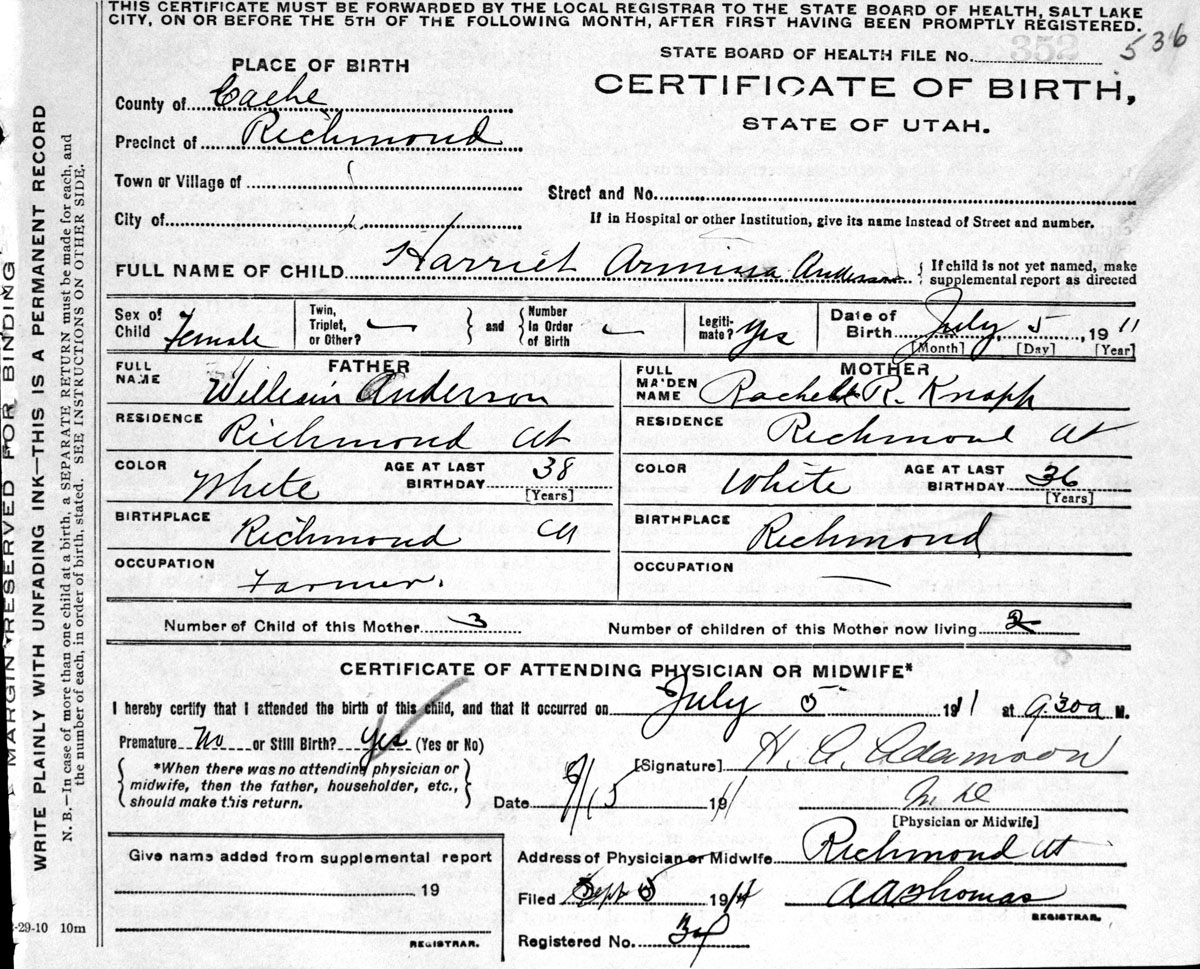 THIS CERTIFICATE MUST BE FORWARDED BY THE LOCAL REGISTRAR TO THE STATE BOARD OF HEALTH, SALT LAKE
CITY, ON OR BEFORE THE 5TH OF THE FOLLOWING MONTH, AFTER FIRST HAVING BEEN PROMPTLY REGISTERED.
536
STATE BOARD OF HEALTH FILE No.
PLACE OF BIRTH
CERTIFICATE OF BIRTH,
STATE OF UTAH.
County of Cache
Precinct of Richmond
Town or Village of
Street and No.
City of
If in Hospital or other Institution, give its name instead of Street and number.
FULL NAME OF CHILD Harriet Armissa Anderson { If child is not yet named, make supplemental report as directed
Sex of Child Female
Twin, Triplet, or Other? — } and { Number in Order of Birth —
Legitimate? Yes
Date of Birth July 5, 1911
[Month] [Day] [Year]
FATHER
FULL NAME William Anderson
RESIDENCE Richmond Ut
COLOR White
AGE AT LAST BIRTHDAY 38
[Years]
BIRTHPLACE Richmond Ut
OCCUPATION Farmer.
MOTHER
FULL MAIDEN NAME Rachel R. Knapp
RESIDENCE Richmond Ut
COLOR White
AGE AT LAST BIRTHDAY 36
[Years]
BIRTHPLACE Richmond
OCCUPATION —
Number of Child of this Mother 3
Number of children of this Mother now living 2
CERTIFICATE OF ATTENDING PHYSICIAN OR MIDWIFE*
I hereby certify that I attended the birth of this child, and that it occurred on July 5 1911 at 9.30a M.
Premature No or Still Birth? Yes (Yes or No)
{ *When there was no attending physician or
midwife, then the father, householder, etc.,
should make this return. }
[Signature] H. A. Adamson
Date 1911
M D
[Physician or Midwife]
Give name added from supplemental report
19
REGISTRAR.
Address of Physician or Midwife Richmond Ut
Filed Sept 5 1911
A A Thomas
REGISTRAR.
Registered No.
-29-10 10m
MARGIN RESERVED FOR BINDING
WRITE PLAINLY WITH UNFADING INK—THIS IS A PERMANENT RECORD
N. B.—In case of more than one child at a birth, a SEPARATE RETURN must be made for each, and
the number of each, in order of birth, stated. SEE INSTRUCTIONS ON OTHER SIDE.